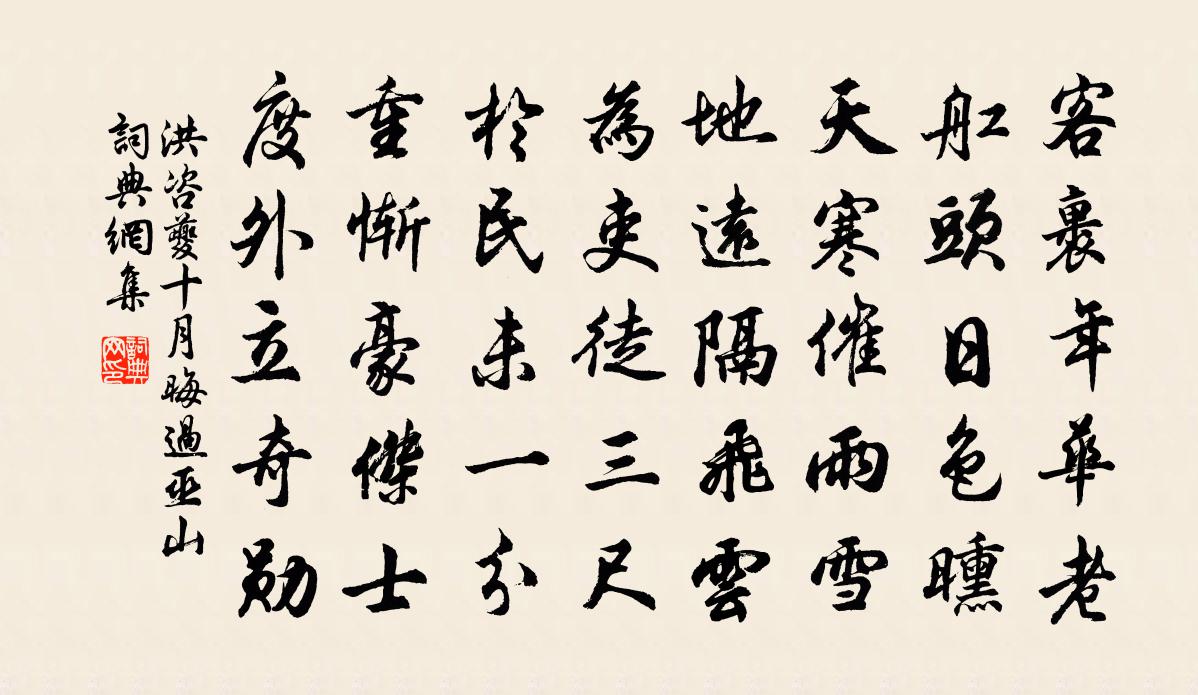 客裏年華老
舡頭日色曛
天寒催雨雪
地遠隔飛雲
為吏徒三尺
於民未一分
重慚豪傑士
度外立奇勛
洪咨夔十月晦過巫山
詞典網集
詞典网印